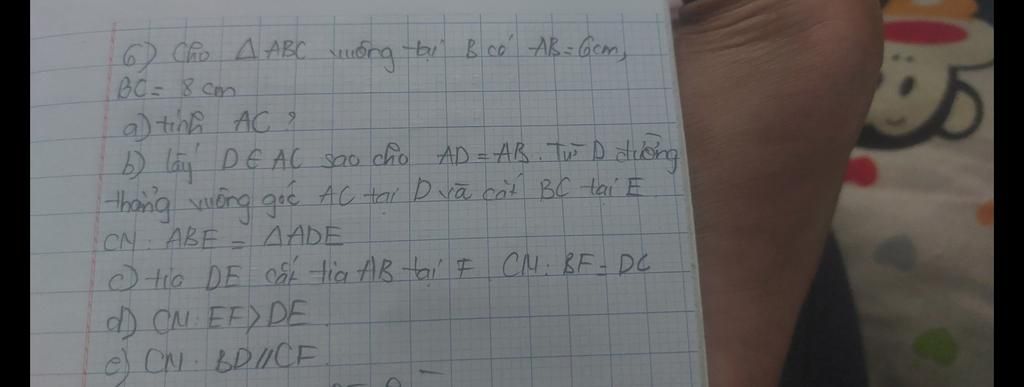 6) Cho Δ ABC vuông tại B có AB = 6cm,
BC = 8 cm
a) tính AC ?
b) lấy D ∈ AC sao cho AD = AB. Từ D đường
thẳng vuông góc AC tại D và cắt BC tại E
CM: ABE = ΔADE
c) tia DE cắt tia AB tại F CM: BF = DC
d) CM: EF > DE
e) CM: BD // CF